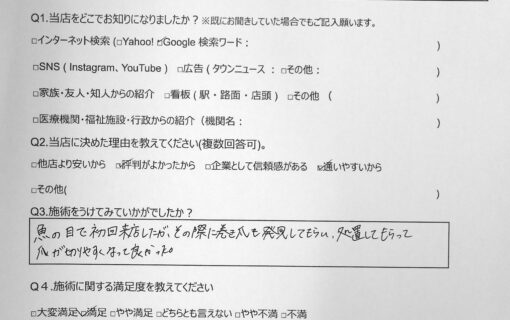 Q1.当店をどこでお知りになりましたか？※既にお聞きしていた場合でもご記入願います。
□インターネット検索 (□Yahoo! ☑Google 検索ワード： )
□SNS ( Instagram、YouTube ) □広告 ( タウンニュース ： □その他： )
□家族・友人・知人からの紹介 □看板 ( 駅・路面・店頭 ) □その他 （ )
□医療機関・福祉施設・行政からの紹介（機関名： )
Q2.当店に決めた理由を教えてください(複数回答可)。
□他店より安いから ☑評判がよかったから □企業として信頼感がある ☑通いやすいから
□その他( )
Q3.施術をうけてみていかがでしたか？
魚の目で初回来店したが、その際に巻き爪も発見してもらい、処置してもらって
爪が切りやすくなって良かった。
Q４.施術に関する満足度を教えてください
□大変満足 ☑満足 □やや満足 □どちらとも言えない □やや不満 □不満